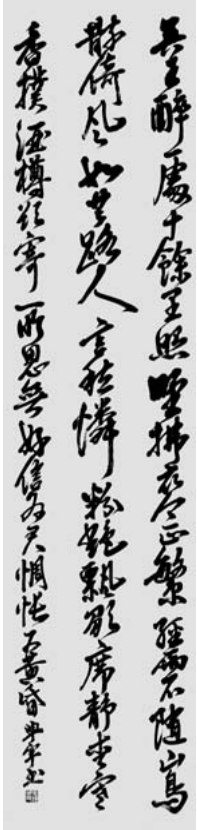 吳王醉處十餘里照野拂衣今正繁經雨不隨山鳥
散倚風如共路人言愁憐粉艷飄歌席靜愛寒
香撲酒樽欲寄所思無好信為君惆悵又黃昏書